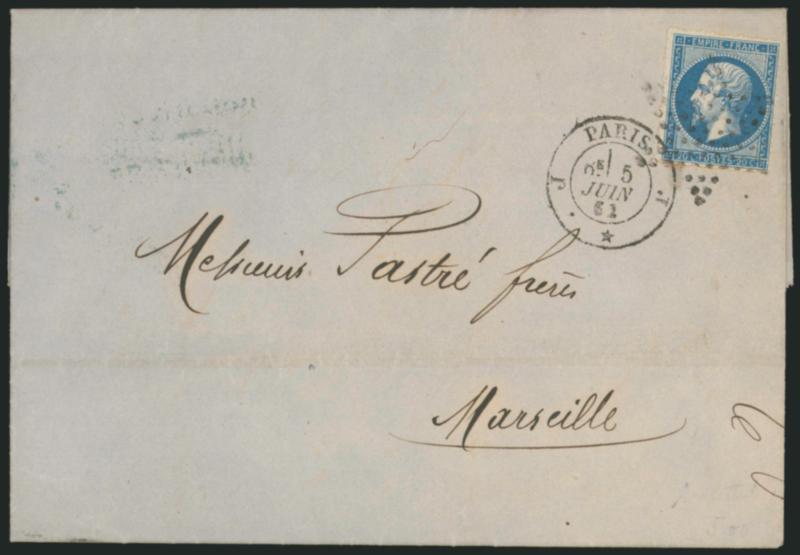 EMPIRE FRANC
20 C POSTES 20 C
PARIS
J 5 J
JUIN
62
Messieurs Pastré frères
Marseille